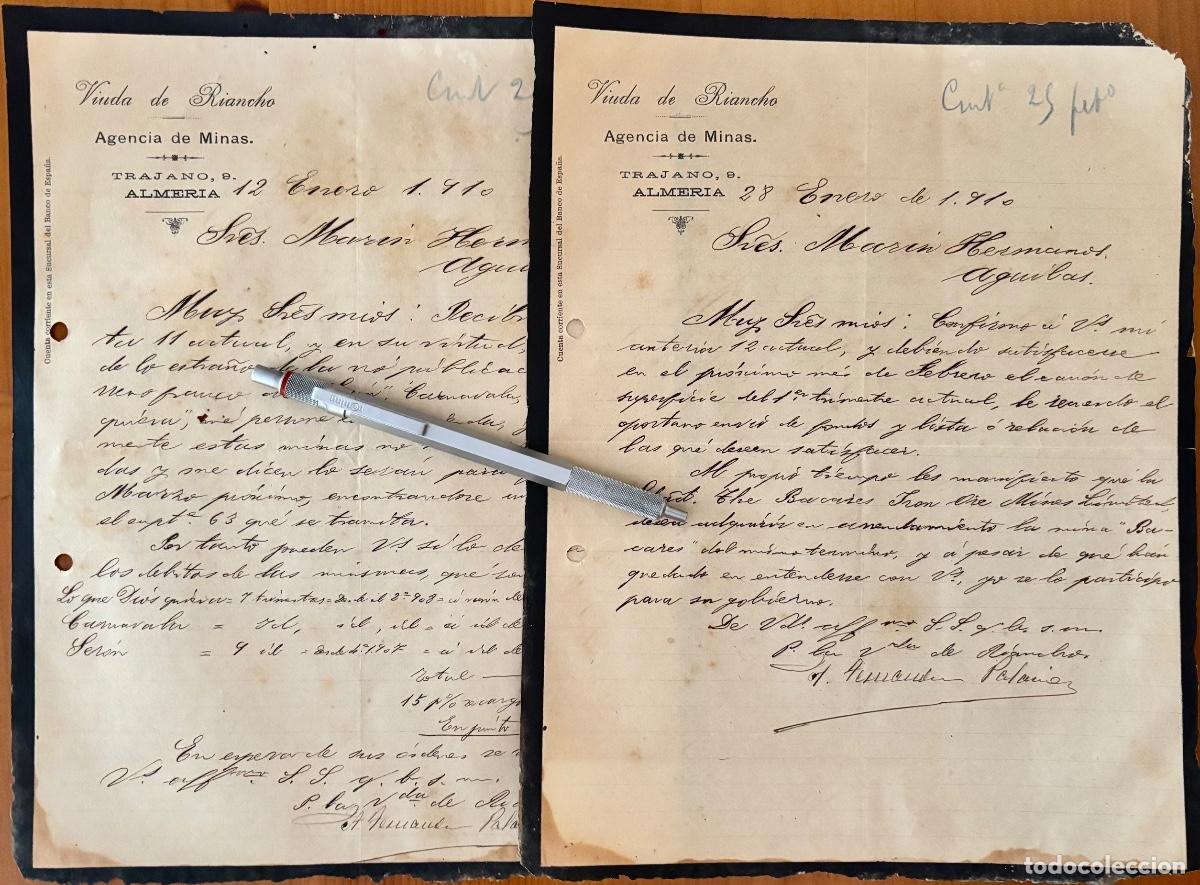 Viuda de Riancho
Agencia de Minas.
TRAJANO, 9.
ALMERIA 12 Enero 1.910
Cuenta corriente en esta Sucursal del Banco de España.
Srēs. Marin Herm
Aguil
Muy Srēs mios: Recibi
ta 11 actual, y en su virtud,
de lo extraño de la no públicac
nero franco Carnavala,
quiera",
mente estas minas no
das y me dicen lo seran para
Marzo próximo, encontrandose
el expte 63 qué se tramita.
Por tanto pueden Vs
los debitos de las mismas, qué son
Lo que Diós quiera = 7 trimestres = desde el 2º 908 = a razón de
Carnavala = id, id, id = a id de
Serón = 9 id = desde 4º 1907 = a id de
Total
15 p% recargo
En junto
En espera de sus órdenes se
Vs affmo S. S. q. b. s. m.
P. la Vda de Ria
Viuda de Riancho
Agencia de Minas.
TRAJANO, 9.
ALMERIA 28 Enero de 1.910
Contº 25 febº
Cuenta corriente en esta Sucursal del Banco de España.
Srēs. Marin Hermanos.
Aguilas.
Muy Srēs mios: Confirmo á Vs mi
anterior 12 actual, y debiendo satisfacerse
en el próximo mes de Febrero el canón de
superficie del 1er trimestre actual, le recuerdo el
oportuno envio de fondos y lista ó relación de
las qué deseen satisfacer.
Al propio tiempo les manifiesto qué la
The Bacares Iron Ore Mines Limited
desea adquirir en arrendamiento la mina "Ba-
cares" del mismo termino, y á pesar de que han
quedado en entenderse con Vs, yo se lo participo
para su gobierno.
De Vds. affmo S. S. q. b. s. m.
P. la Vda de Riancho.
todocoleccion